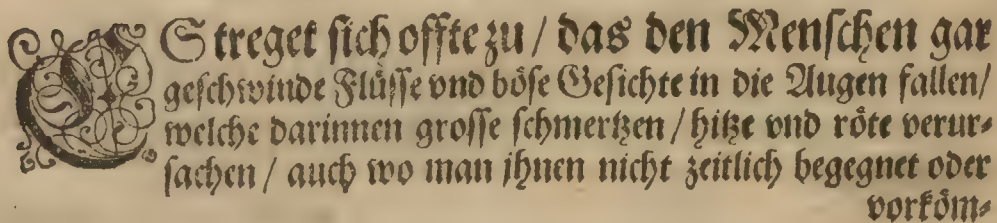 ES treget sich offte zu / das den Menschen gar
geschwinde Flüsse vnd böse Gesichte in die Augen fallen /
welche darinnen grosse schmertzen / hitze vnd röte verur⸗
sachen / auch wo man ihnen nicht zeitlich begegnet oder
vorköm⸗